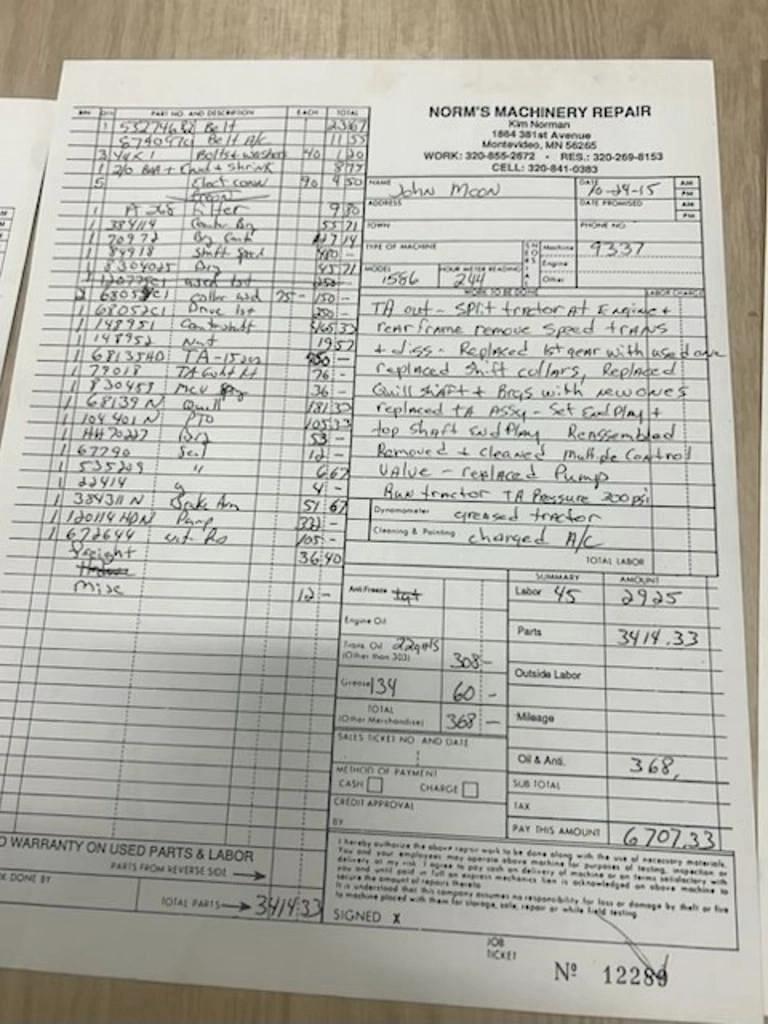 NORM'S MACHINERY REPAIR
Kim Norman
1864 381st Avenue
Montevideo, MN 56265
WORK: 320-855-2672 • RES.: 320-269-8153
CELL: 320-841-0383
NAME John Moon DATE 10-29-15 AM PM
ADDRESS DATE PROMISED AM PM
TOWN PHONE NO.
TYPE OF MACHINE Machine 9337
Engine
MODEL 1586 HOUR METER READING 244 Other
WORK TO BE DONE LABOR CHARGE
TA out - Split tractor At Engine +
rear frame remove Speed trans
+ diss - Replaced 1st gear with used one
replaced shift collars, Replaced
Quill shaft + Brgs with new ones
replaced TA Assy - Set End Play +
top shaft End Play Reassembled
Removed + cleaned Multiple Control
Valve - replaced Pump
Run tractor TA Pressure 200 psi
Dynamometer greased tractor
Cleaning & Painting charged A/C
TOTAL LABOR
QTY. PART NO. AND DESCRIPTION EACH TOTAL
1 Belt 23 67
Belt A/C 11 55
3 Bolts + washers 40 1 20
1 2/0
5 Elect conn 90 4 50
1 A 268 Filter 9 80
1 384114
1 70972
1 84918 Shift
1 8304025 45 71
2 collar usd 75- 150 -
1 68052C1 Drive 1st 250 -
1 148951
1 148952 Nut 19 57
1 68135HD TA-15
1 79018 76 -
1 830459 MCV 36 -
1 68139 N Quill
1 104401 N PTO 105 33
1 53 -
1 67790 Seal 12 -
1 535209 " 6 67
1 22414 " 4 -
1 384311 N 51 67
1 120114 HDN Pump 332 -
1 672644 105 -
Freight 36 40
Misc 12 -
Anti Freeze
Engine Oil
Trans. Oil 22 qts
(Other than 303) 308 -
Grease 134 60 -
TOTAL
(Other Merchandise) 368 -
SALES TICKET NO. AND DATE
METHOD OF PAYMENT
CASH CHARGE
CREDIT APPROVAL
BY
SUMMARY AMOUNT
Labor 45 2925
Parts 3414.33
Outside Labor
Mileage
Oil & Anti. 368,
SUB TOTAL
TAX
PAY THIS AMOUNT 6707.33
WARRANTY ON USED PARTS & LABOR
PARTS FROM REVERSE SIDE
DONE BY
TOTAL PARTS 3414.33
I hereby authorize the above repair work to be done along with the use of necessary materials.
You and your employees may operate above machine for purposes of testing, inspection or
delivery at my risk. I agree to pay cash on delivery of machine or on terms satisfactory with
you and until paid in full an express mechanics lien is acknowledged on above machine to
secure the amount of repairs thereto.
It is understood that this company assumes no responsibility for loss or damage by theft or fire
to machine placed with them for storage, sale, repair or while field testing.
SIGNED X
JOB
TICKET
Nº 12289